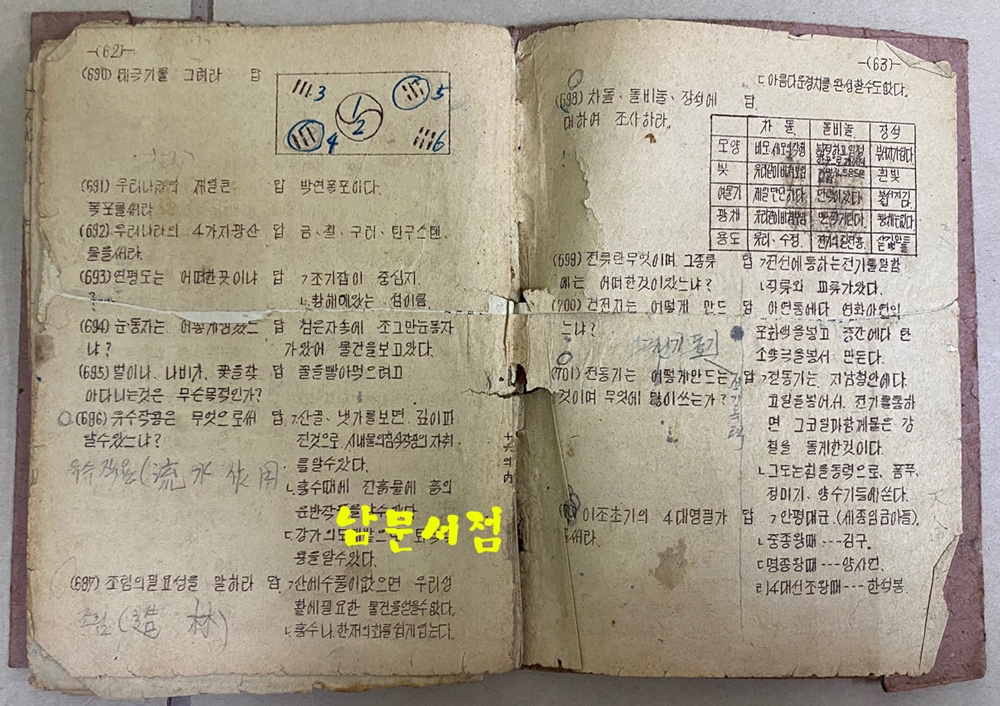 -(62)-
(690) 태극기를 그려라 답
1
2
3
4
5
6
(691) 우리나라 제일큰 답 박연폭포이다.
폭포를써라
(692) 우리나라의 4가지광산 답 금、철、구리、텅구스텐、
물을써라.
(693) 연평도는 어떠한곳이냐 답 ㄱ조기잡이 중심지.
ㄴ황해에있는 섬이름.
(694) 눈동자는 어떻게생겼느 답 검은자속에 조그만눈동자
냐? 가있어 물건을보고있다.
(695) 벌이나、나비가、꽃을찾 답 꿀을빨아먹으려고
아다니는것은 무슨목적인가?
(696) 유수작용은 무엇으로써 답 ㄱ산골、냇가를보면 깊이파
알수있느냐? 진것으로 시내물의침식작용의 자취
를알수있다.
유수 작용 (流水作用
ㄴ홍수때에 진흙물에 흙의
운반작용을알수있다.
ㄷ강가의
용을알수있다.
남문서점
(697) 조림의필요성을 말하라 답 ㄱ산에수풀이없으면 우리생
활에필요한 물건을얻을수없다.
조림 (造林)
ㄴ홍수나、한재의화를쉽게입는다.
-(63)-
ㄷ아름다운경치를 완성할수도없다.
(698) 차돌、돌비늘、장석에 답
대하여 조사하라.
차돌 돌비늘 장석
모양
빛 흰빛
여물기 제일딴딴하다
광채
용도 유리、수정
(699) 전류란무엇이며 그종류 답 ㄱ전선에통하는전기를말함
에는 어떠한것이있느냐? ㄴ직류와 교류가있다.
(700) 건전지는 어떻게 만드 답 아연통에다 염화아연의
는냐? 포화액을넣고 중간에다 탄
소양극을넣서 만든다.
(701) 전동기는 어떻게만드는 답 ㄱ전동기는、지남철안에다
것이며 무엇에 많이쓰는가? 코일을넣어서、전기를통하
면 그코일과함께물은 강
철을 돌게한것이다.
ㄴ그도는힘을동력으로、폼푸、
정미기、양수기들에쓴다.
이조초기의 4대명필가 답 ㄱ안평대군.(세종임금아들).
를써라. ㄴ중종왕때---김구.
ㄷ명종왕때---양사언.
ㄹ14대선조왕때---한석봉.